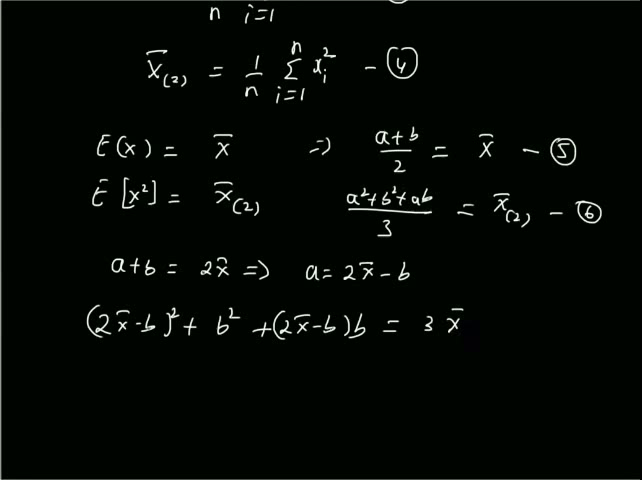 n i=1
x̄(2) = 1/n Σ_{i=1}^{n} x_i² - ④
E(x) = x̄ => a+b/2 = x̄ - ⑤
E[x²] = x̄(2) a²+b²+ab/3 = x̄(2) - ⑥
a+b = 2x̄ => a = 2x̄ - b
(2x̄-b)² + b² + (2x̄-b)b = 3 x̄